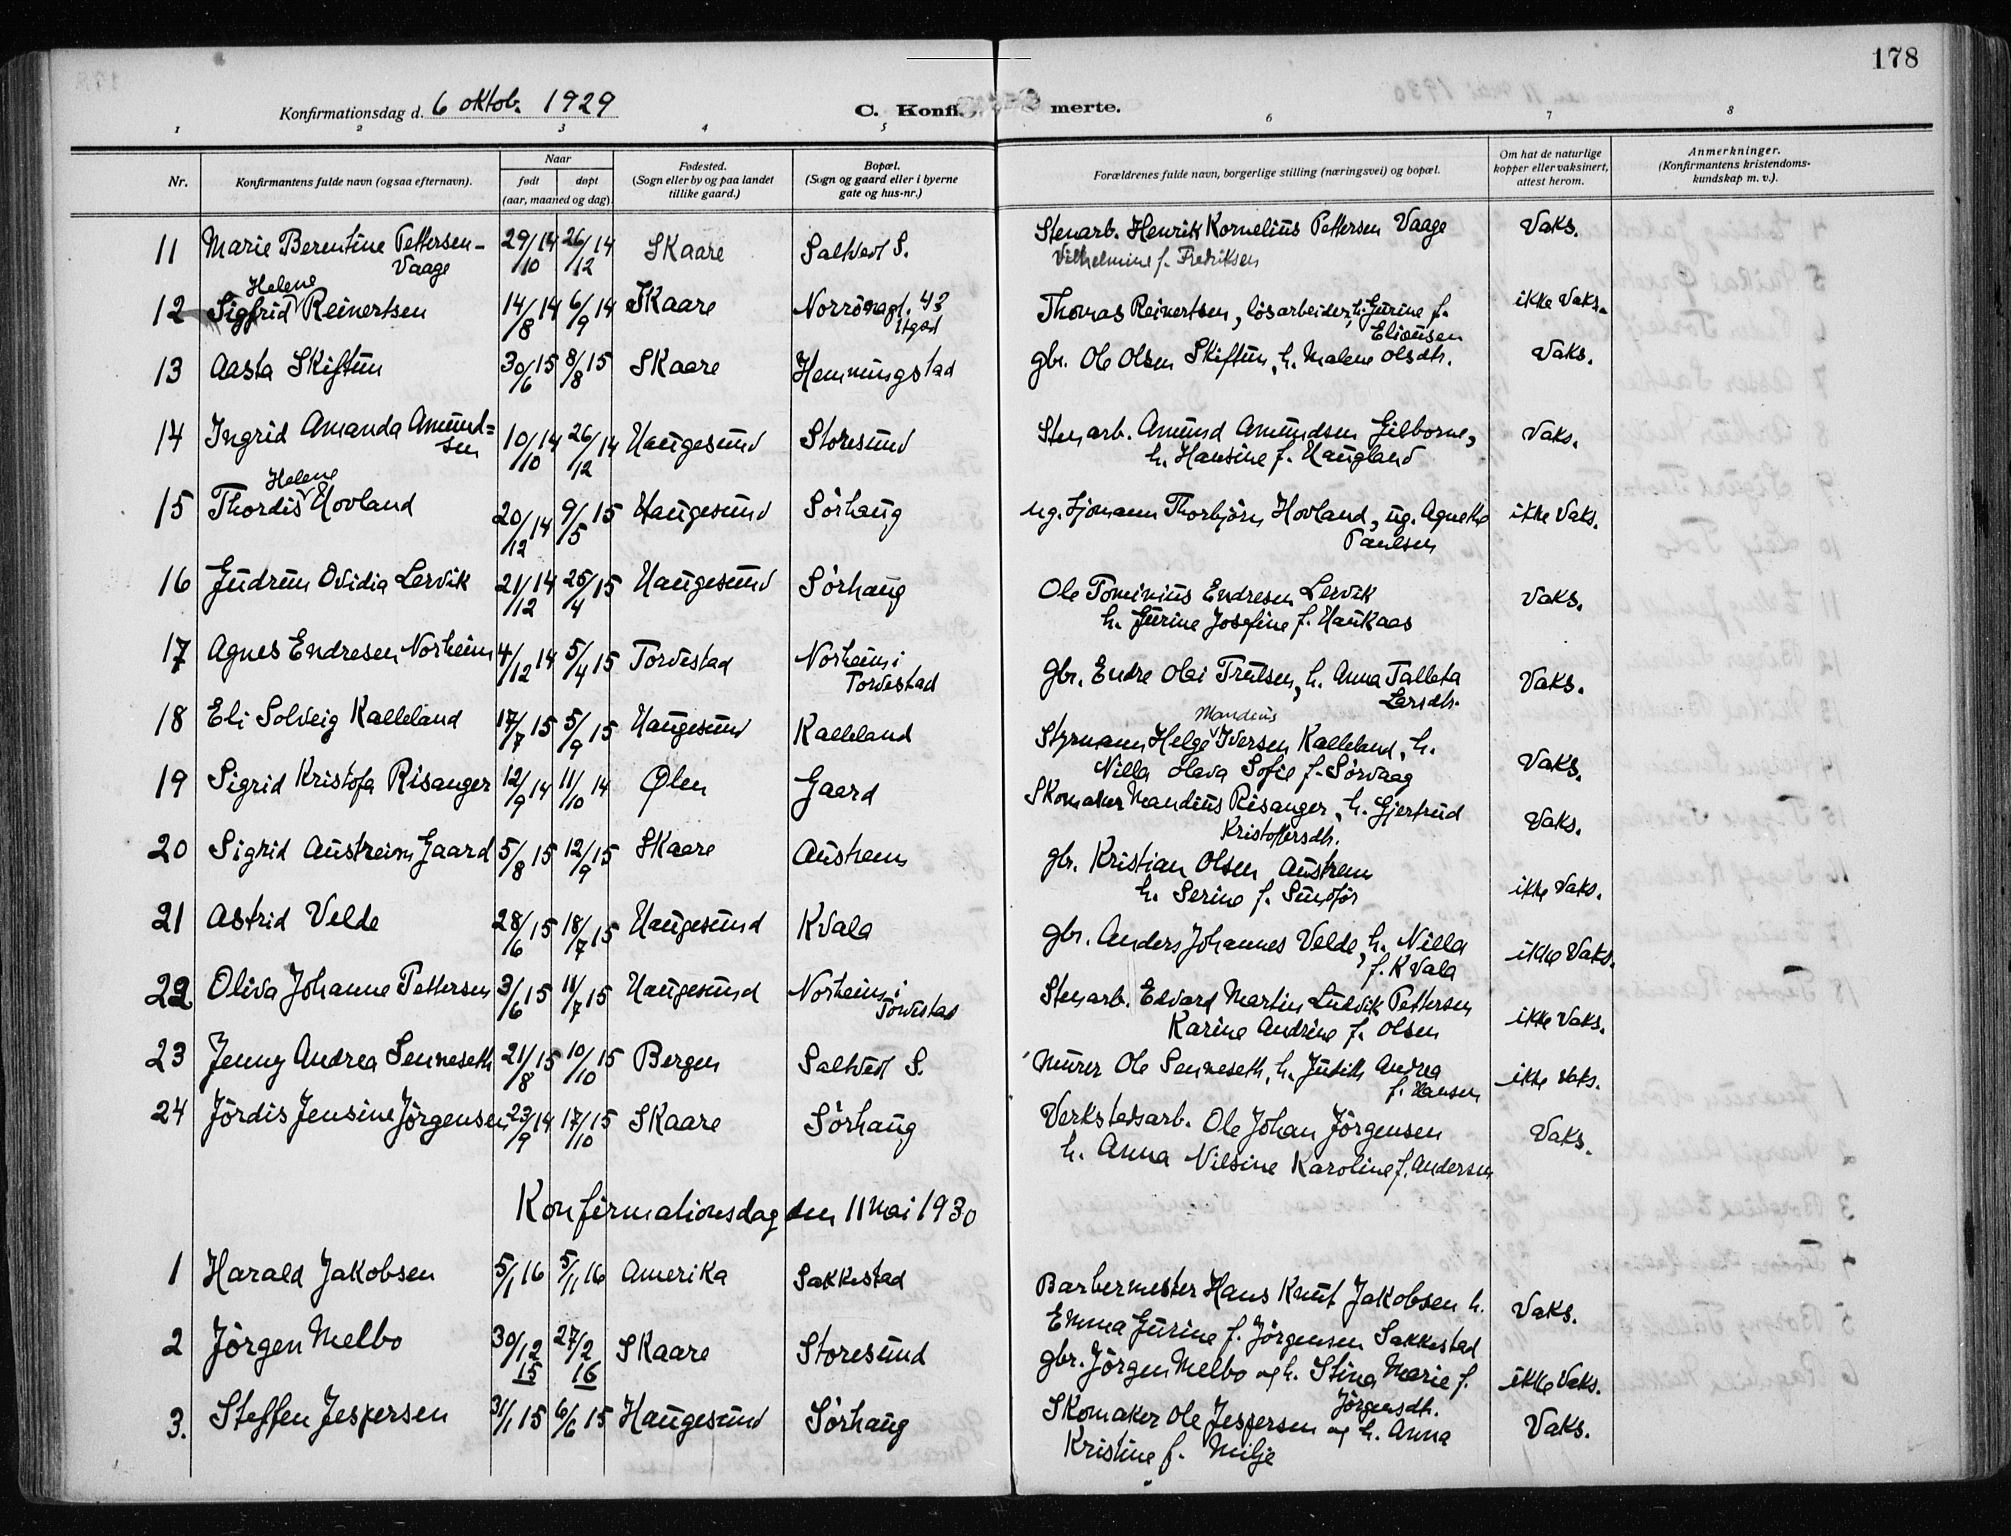 178
Konfirmationsdag d. 6 oktob. 1929
C. Konfi merte.
1 2 3 4 5 6 7 8
Nr.
Konfirmantens fulde navn (ogsaa efternavn).
Naar
født
døpt
(aar, maaned og dag).
Fødested.
(Sogn eller by og paa landet
tillike gaard.)
Bopæl.
(Sogn og gaard eller i byerne
gate og hus-nr.)
Forældrenes fulde navn, borgerlige stilling (næringsvei) og bopæl.
Om hat de naturlige
kopper eller vaksinert,
attest herom.
Anmerkninger.
(Konfirmantens kristendoms-
kundskap m. v.).
11 Marie Berentine Pettersen- 29/10 14 26/12 14 Skaare Saltved S. Stenarb. Henrik Kornelius Pettersen Vaage Vaks.
Vaage Vilhelmine f. Fredriksen
Helene
12 Sigfrid Reinertsen 14/8 14 6/9 14 Skaare Norrönagt. 43 Thomas Reinertsen, lösarbeider, h. Gurine f. ikke Vaks.
Eliausen
13 Aasta Skiftun 30/6 15 8/8 15 Skaare Hemmingstad gbr. Ole Olsen Skiftun, h. Malene Olsdtr. Vaks.
14 Ingrid Amanda Amund= 10/10 14 26/12 14 Haugesund Storesund Stenarb. Amund Amundsen Gilborne, Vaks.
sen h. Hansine f. Haugland
Helene
15 Thordis Hovland 20/12 14 9/5 15 Haugesund Sörhaug ug. Sjömann Thorbjörn Hovland, ug. Agnethe ikke Vaks.
Paulsen
16 Gudrun Ovidia Lervik 21/12 14 25/4 15 Haugesund Sörhaug Ole Tominius Endresen Lervik Vaks.
h. Gurine Josefine f. Haukaas
17 Agnes Endresen Norheim 4/12 14 5/4 15 Torvestad Norheim i gbr. Endre Olai Trulsen, h. Anna Talleta Vaks.
Torvestad Larsdtr.
18 Eli Solveig Kalleland 17/7 15 5/9 15 Haugesund Kalleland Styrmann Helge Mandius Iversen Kalleland, h. Vaks.
Nilla Hava Sofie f. Sörvaag
19 Sigrid Kristofa Risanger 12/9 14 11/10 14 Ølen Gaard Skomaker Mandius Risanger, h. Gjertrud Vaks.
Kristoffersdtr.
20 Sigrid Austreim Gaard 5/8 15 12/9 15 Skaare Austrem gbr. Kristian Olsen Austrem ikke Vaks.
h. Serine f. Sundför
21 Astrid Velde 28/6 15 18/7 15 Haugesund Kvala gbr. Anders Johannes Velde, h. Nilla ikke Vaks.
f. Kvala
22 Oliva Johanne Pettersen 3/6 15 11/7 15 Haugesund Norheim i Stenarb. Edvard Martin Ludvik Pettersen ikke Vaks.
Torvestad Karine Andrine f. Olsen
23 Jenny Andrea Senneseth 21/8 15 10/10 15 Bergen Saltved S. Murer Ole Senneseth, h. Judith Andrea ikke Vaks.
f. Hansen
24 Jördis Jensine Jörgensen 23/9 14 17/10 15 Skaare Sörhaug Verkstedsarb. Ole Johan Jörgensen Vaks.
h. Anna Nilsine Karoline f. Andersen
Konfirmationsdag den 11 Mai 1930
1 Harald Jakobsen 5/1 16 5/11 16 Amerika Sakkestad Barbermester Hans Knut Jakobsen h. Vaks.
Emma Gurine f. Jörgensen Sakkestad
2 Jörgen Melbo 30/12 15 27/2 16 Skaare Storesund gbr. Jörgen Melbo og h. Stina Marie f. ikke Vaks.
Jörgensdtr.
3. Steffen Jespersen 31/1 15 6/6 15 Haugesund Sörhaug Skomaker Ole Jespersen og h. Anna Vaks.
Kristine f. Milje